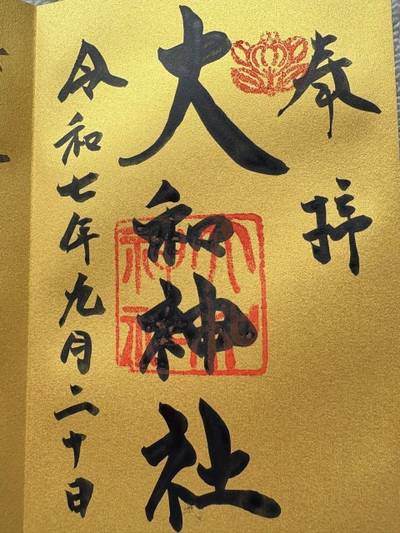 奉拝
大和神社
令和七年九月二十日